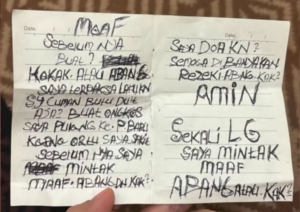 MAAF
SEBELUM NYA
BUAT?
KAKAK ATAU ABANG
SAYA TERPAKSA LAKUKN
SY CUMAN BUTU DUT
ASA? BUAT ONGKOS
SAYA PULANG KE P BARU
KARNO ORTU SAYA SAKIT
SEBELUM NYA SAYA
MINTAK
MAAF. ABANG DN KAK?
SAYA DOA KN?
SEMOGA DI BANDAKAN
REZEKI ABANG KAK?
AMIN
SEKALI LG
SAYA MINTAK
MAAF
APANG ATAU KAK?